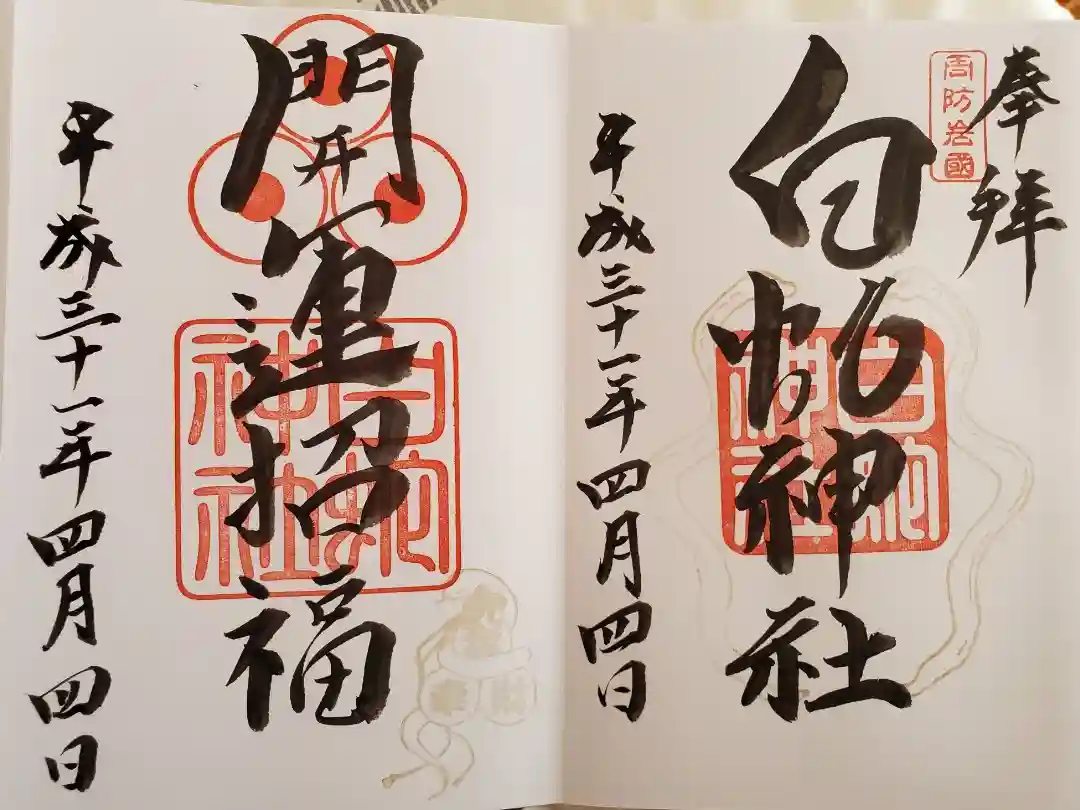 奉拝
周防岩國
白蛇神社
白蛇神社
平成三十一年四月四日
開運招福
白蛇神社
平成三十一年四月四日